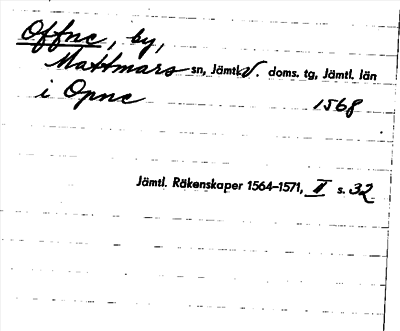 Offne, by,
Mattmars sn, Jämtl. V. doms. tg, Jämtl. län
i Opne 1568
Jämtl. Räkenskaper 1564–1571, II s. 32